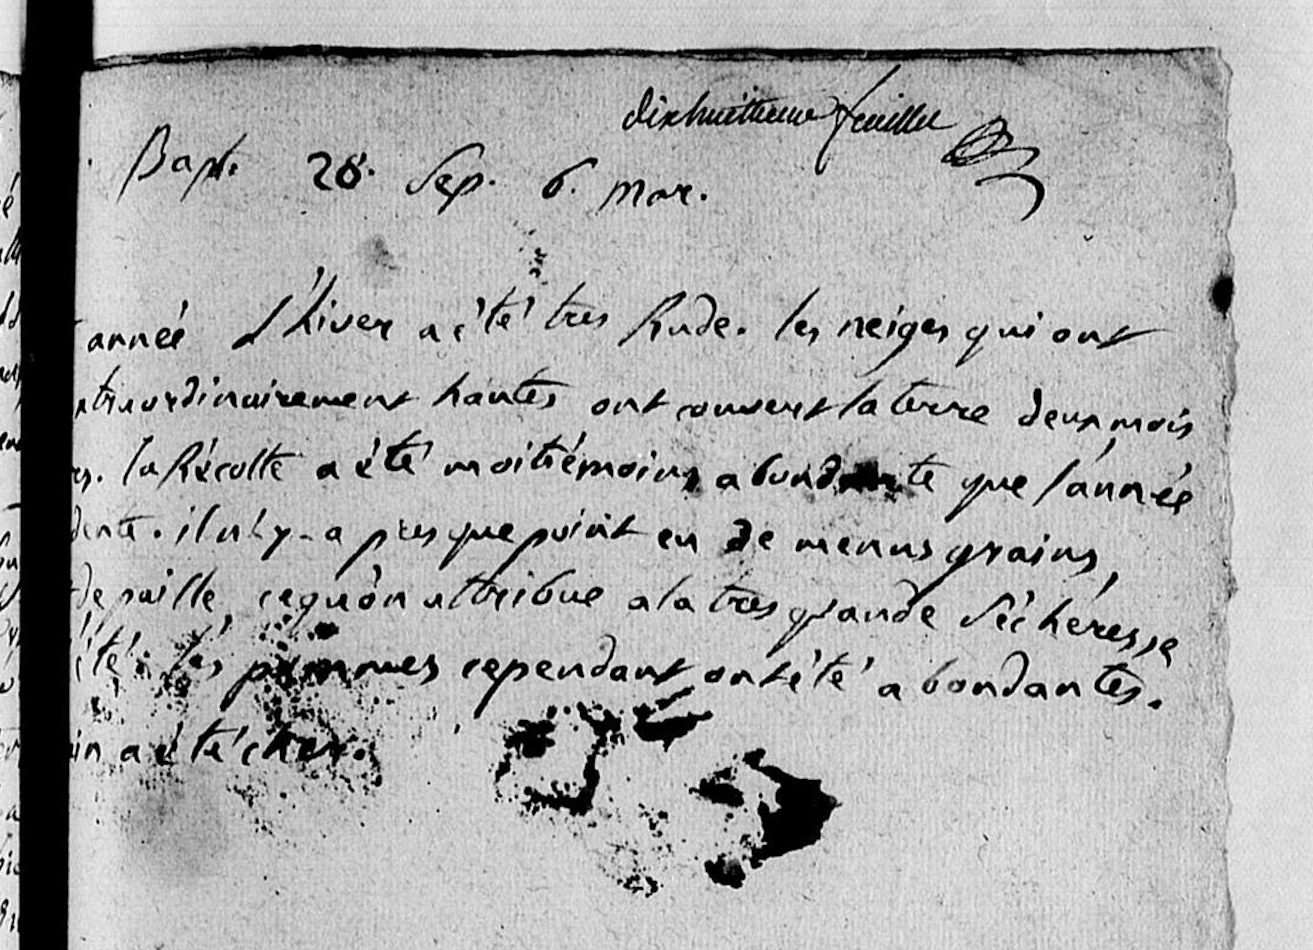 dixhuitieme feuillet
Bapt. 28. Sep. 6. mar.
année l'hiver a été tres Rude. les neiges qui ont
xtraordinairement hautes ont couvert la terre deux mois
la Récolte a été moitié moins abondante que l'année
dente. il n'y-a presque point eu de menus grains,
de paille, ce qu'on attribue a la tres grande Sécheresse
été. les pommes cependant ont été abondantes.
in a été cher.